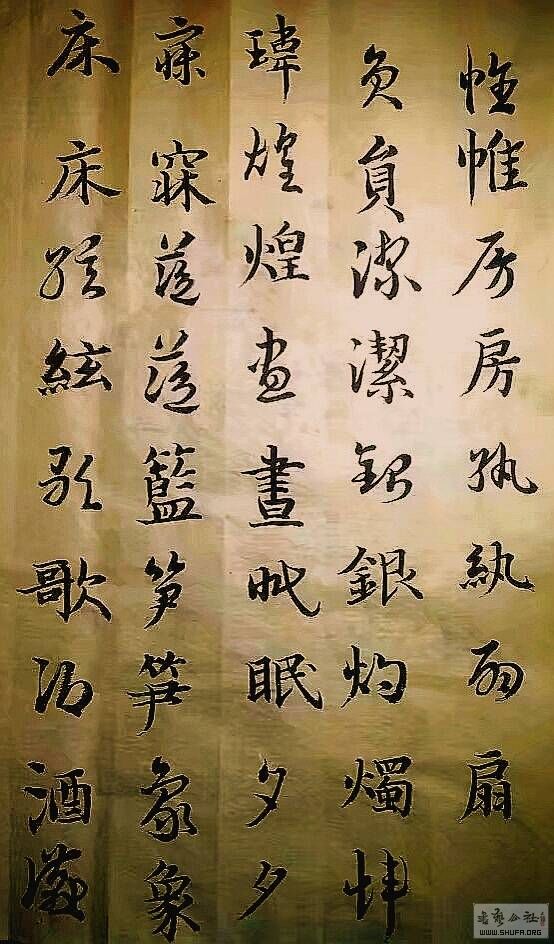 帷帷房房紈紈扇扇
員員潔潔銀銀燭燭煒
煒煌煌晝晝眠眠夕夕
寐寐籃筍筍象象
床床絃絃歌歌酒酒讌
书艺公社
WWW.SHUFA.ORG